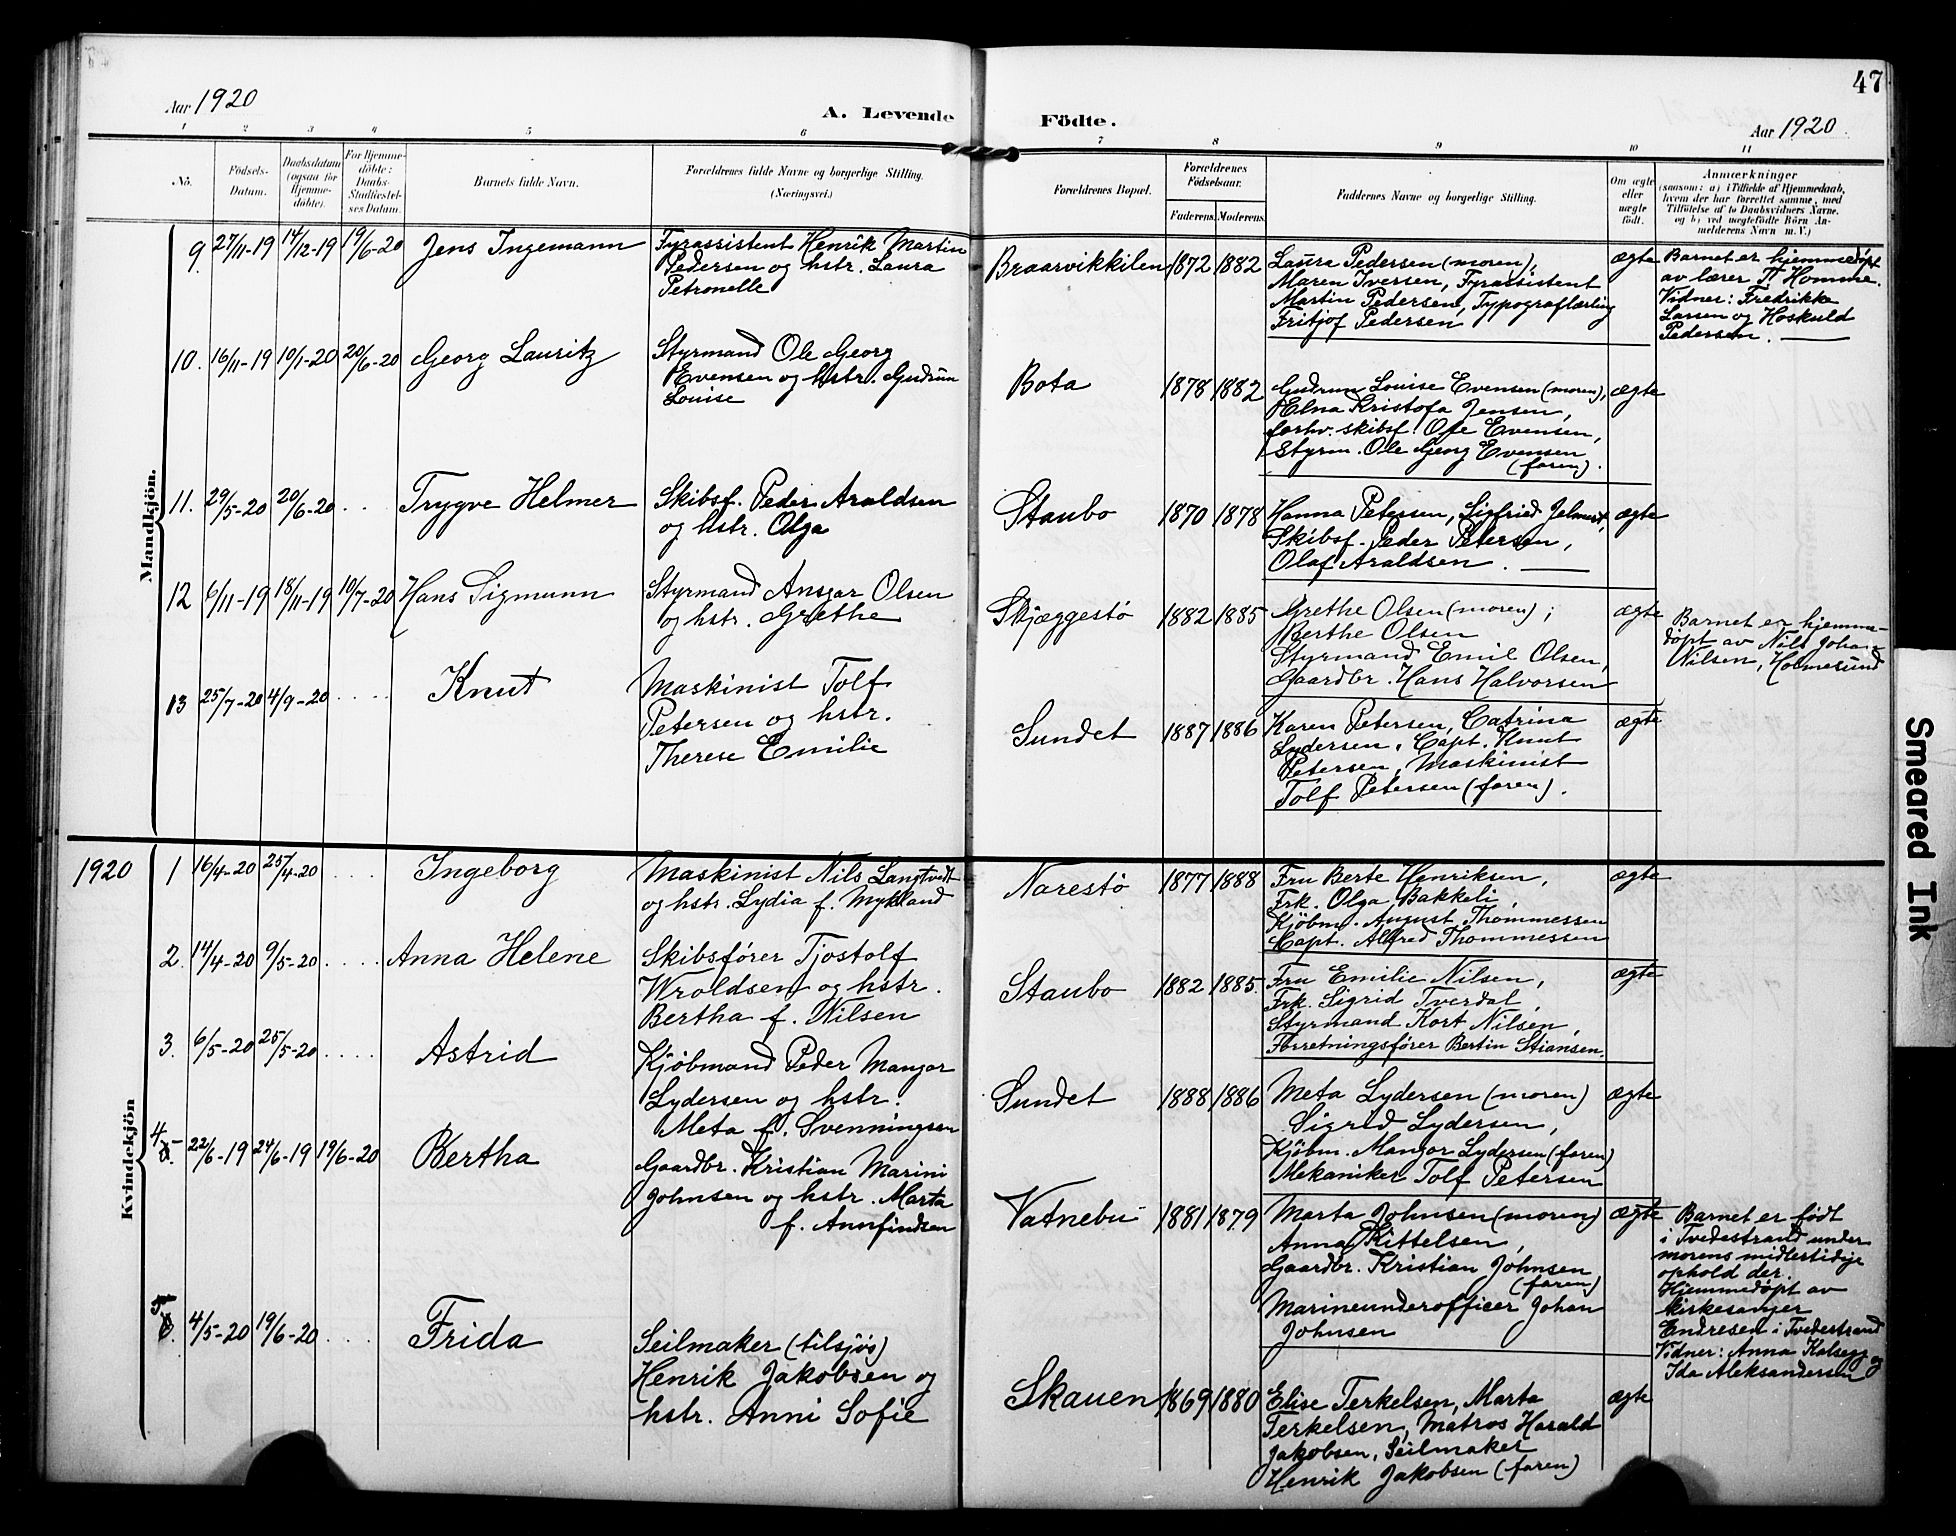 47
Aar 1920
A. Levende Födte.
Aar 1920
1 2 3 4 5 6 7 8 9 10 11
No.
Födsels-
Datum.
Daabsdatum
(ogsaa for
Hjemme-
döbte).
For Hjemme-
döbte:
Daabs-
Stadfæstel-
ses Datum.
Barnets fulde Navn.
Forældrenes fulde Navne og borgerlige Stilling.
(Næringsvei.)
Forældrenes Bopæl.
Forældrenes
Födselsaar.
Faderens. Moderens.
Faddernes Navne og borgerlige Stilling.
Om ægte
eller
uægte
födt.
Anmærkninger
(saasom: a) i Tilfælde af Hjemmedaab,
hvem der har forrettet samme, med
Tilföielse af to Daabsvidners Navne,
og b) ved uægtefödte Börn An-
melderens Navn m.V.)
Mandkjön.
9. 27/11-19 14/12-19 19/6-20 Jens Ingemann
Fyrassistent Henrik Martin
Pedersen og hstr. Laura
Petronelle
Braarvikkilen 1872 1882
Laura Pedersen (moren),
Maren Iversen, Fyrassistent
Martin Pedersen, Typograflærling
Fritjof Pedersen
ægte
Barnet er hjemmedøpt
av lærer T. Homme.
Vidner: Fredrikke
Larsen og Hoskuld
Pedersen.
10. 16/11-19 10/1-20 20/6-20 Georg Lauritz
Styrmand Ole Georg
Evensen og hstr. Gudrun
Louise
Bota 1878 1882
Gudrun Louise Evensen (moren),
Elna Kristofa Jensen,
forhv. skibsf. Ole Evensen,
Styrm. Ole Georg Evensen
(faren).
ægte
11. 29/5-20 20/6-20 . . Trygve Helmer
Skibsf. Peder Araldsen
og hstr. Olga
Staubo 1870 1878
Hanna Petersen, Sigfried Jelmert,
Skibsf. Peder Petersen,
Olaf Araldsen.
ægte
12 6/11-19 18/11-19 10/7-20 Hans Sigmunn
Styrmand Ansgar Olsen
og hstr. Grethe
Skjæggestø 1882 1885
Grethe Olsen (moren);
Berthe Olsen
Styrmand Emil Olsen,
Gaardbr. Hans Halvorsen
ægte
Barnet er hjemme-
døpt av Nils Johan
Nilsen, Holmesund
13 25/7-20 4/9-20 . . . . Knut
Maskinist Tolf
Petersen og hstr.
Therese Emilie
Sundet 1887 1886
Karen Petersen, Catrina
Lydersen, Capt. Knut
Petersen, Maskinist
Tolf Petersen (faren).
ægte
1920
Kvindekjön
1 16/4-20 25/4-20 . . . . Ingeborg
Maskinist Nils Langtvedt
og hstr. Lydia f. Mykland
Narestø 1877 1888
Fru Berte Henriksen,
Frk. Olga Bakkeli,
Kjøbm. August Thommessen
Capt. Alfred Thommessen
ægte
2. 14/4-20 9/5-20 . . . . Anna Helene
Skibsfører Tjostolf
Wroldsen og hstr.
Bertha f. Nilsen
Staubo 1882 1885.
Fru Emilie Nilsen,
Frk. Sigrid Tverdal,
Styrmand Kort Nilsen,
Forretningsfører Bertin Stiansen.
ægte
3. 6/5-20 25/5-20 . . . . Astrid
Kjöbmand Peder Mangor
Lydersen og hstr.
Meta f. Svenningsen
Sundet 1888 1886
Meta Lydersen (moren)
Sigrid Lydersen,
Kjöbm. Mangor Lydersen (faren)
Mekaniker Tolf Petersen
ægte
4. 22/6-19 24/6-19 19/6-20 Bertha
Gaardbr. Kristian Marini
Johnsen og hstr. Marta
f. Annfindsen
Vatnebu 1881 1879
Marta Johnsen (moren)
Anna Kittelsen,
Gaardbr. Kristian Johnsen
(faren)
Marineunderofficer Johan
Johnsen
ægte
Barnet er født
i Tvedestrand under
morens midlertidige
ophold der.
Hjemmedøpt av
kirkesanger
Endresen i Tvedestrand
Vidner: Anna Kalsegg og
Ida Aleksandersen
5. 4/5-20 19/6-20 . . . Frida
Seilmaker (tilsjøs)
Henrik Jakobsen og
hstr. Anni Sofie
Skauen 1869 1880
Elise Terkelsen, Marta
Terkelsen, Matros Harald
Jakobsen, Seilmaker
Henrik Jakobsen (faren)
ægte
Smeared Ink